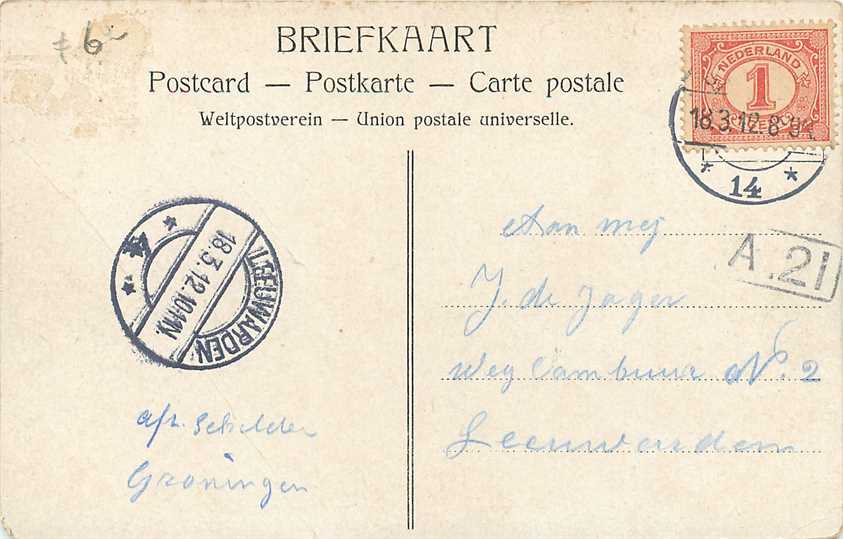 f 6-
BRIEFKAART
Postcard — Postkarte — Carte postale
Weltpostverein — Union postale universelle.
NEDERLAND
1
CENT
18.3.12.8-9
* 14 *
LEEUWARDEN
18.3.12.10-11N.
* 4 *
A.21
Aan mej
J. de Jager
weg Cambuur No. 2
Leeuwarden
afz. Schilder
Groningen